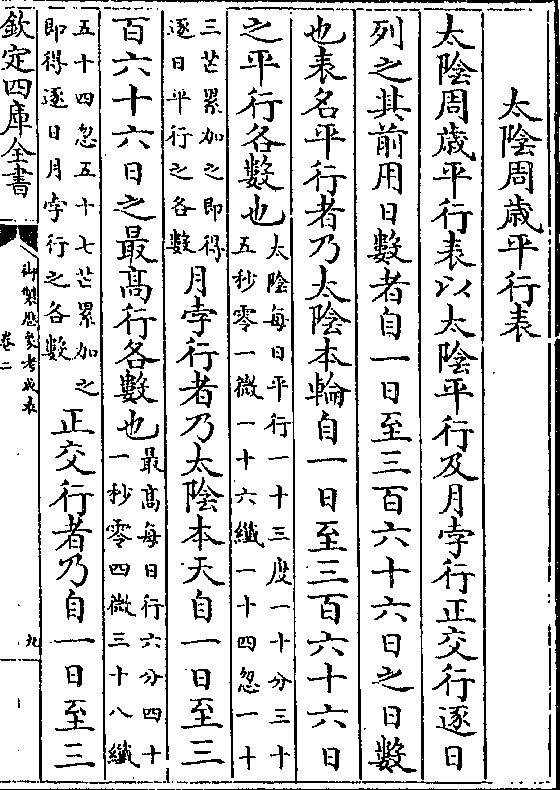 太陰周歳平行表
太陰周歳平行表以太陰平行及月孛行正交行逐日
列之其前用日數者自一日至三百六十六日之日數
也表名平行者乃太陰本輪自一日至三百六十六日
之平行各數也太陰每日平行一十三度一十分三十
五秒零一微一十六纖一十四忽一十
三芒累加之即得
逐日平行之各數月孛行者乃太陰本天自一日至三
百六十六日之最高行各數也最高每日行六分四十
一秒零四微三十八纖
五十四忽五十七芒累加之
即得逐日月孛行之各數正交行者乃自一日至三
欽定四庫全書
御製厯象考成表
卷二
九